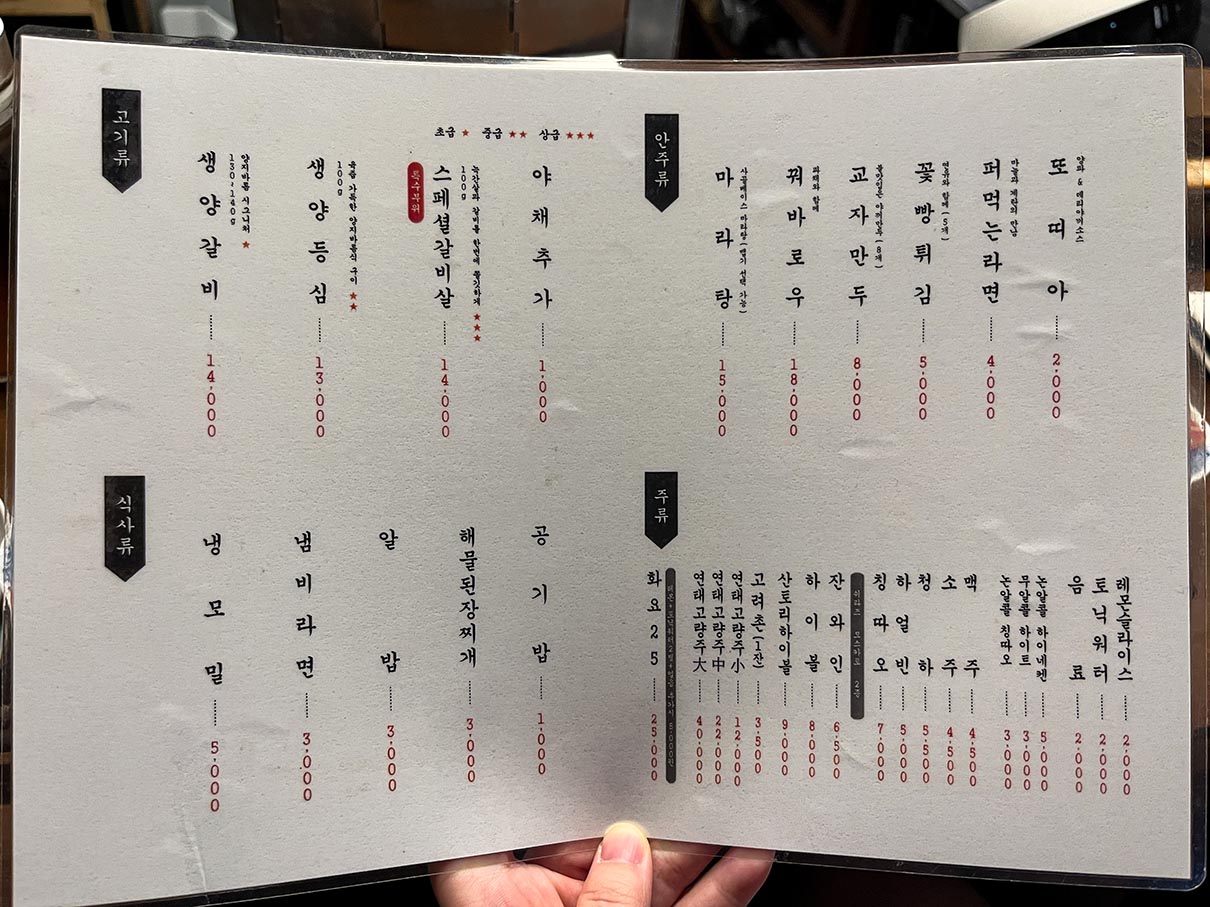 고기류
생양갈비 ...... 14,000
양지바름 시그니처 ★
130~140g
생양등심 ...... 13,000
육즙 가득한 양지바름식 구이 ★★
100g
특수부위
스페셜갈비살 ...... 14,000
100g
★★★
야채추가 ...... 1,000
초급 ★ 중급 ★★ 상급 ★★★
식사류
냉모밀 ...... 5,000
냄비라면 ...... 3,000
알밥 ...... 3,000
해물된장찌개 ...... 3,000
공기밥 ...... 1,000
안주류
마라탕 ...... 15,000
사골베이스 마라탕 (맵기 선택 가능)
꿔바로우 ...... 18,000
파채와 함께
교자만두 ...... 8,000
(8개)
꽃빵튀김 ...... 5,000
연유와 함께 (5개)
퍼먹는라면 ...... 4,000
마늘과 계란의 만남
또띠아 ...... 2,000
양파 & 데리야끼소스
주류
화요25 ...... 25,000
5,000원
연태고량주大 ...... 40,000
연태고량주中 ...... 22,000
연태고량주小 ...... 12,000
고려촌(1잔) ...... 3,500
산토리하이볼 ...... 9,000
하이볼 ...... 8,000
잔와인 ...... 6,500
쉬라즈 모스카토 2종
칭따오 ...... 7,000
하얼빈 ...... 5,000
청하 ...... 5,500
소주 ...... 4,500
맥주 ...... 4,500
논알콜 칭따오 ...... 3,000
무알콜 하이트 ...... 3,000
논알콜 하이네켄 ...... 5,000
음료 ...... 2,000
토닉워터 ...... 2,000
레몬슬라이스 ...... 2,000